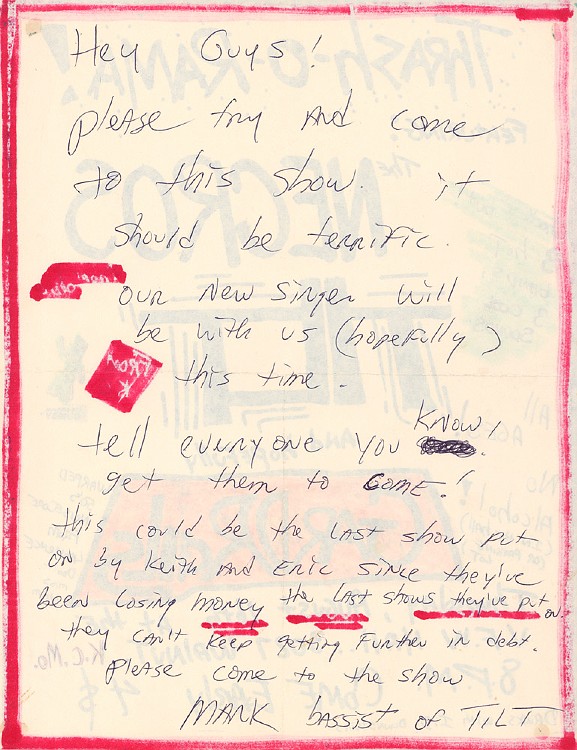 Hey Guys!
please try And come
to this show. it
should be terrific.
our New Singer will
be with us (hopefully)
this time.
tell everyone you KNOW!
get them to COME!
this could be the LAST show put
on by Keith And Eric since they've
been losing money the LAST shows they've put on.
they can't keep getting Further in debt.
please come to the show
MARK bassist of TILT